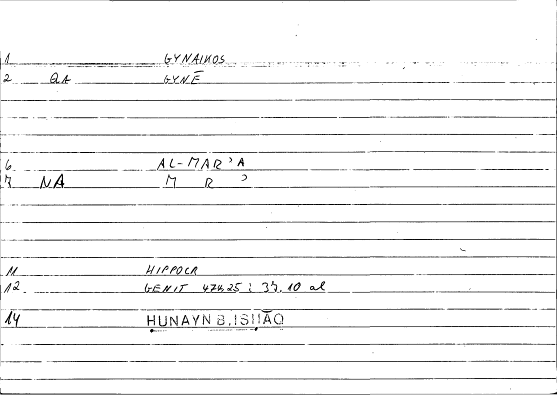 1 GYNAIKOS
2 QA GYNĒ
6 AL-MAR'A
7 NA M R '
11 HIPPOCR
12 GENIT 474,25 : 37.10 al
14 HUNAYN B. ISḤĀQ